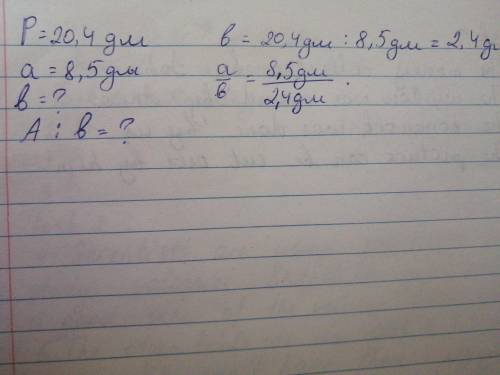 P=20,4 дм
a = 8,5 дм
в = ?
A : в = ?
в = 20,4 дм : 8,5 дм = 2,4 д
a/в = 8,5дм/2,4дм .